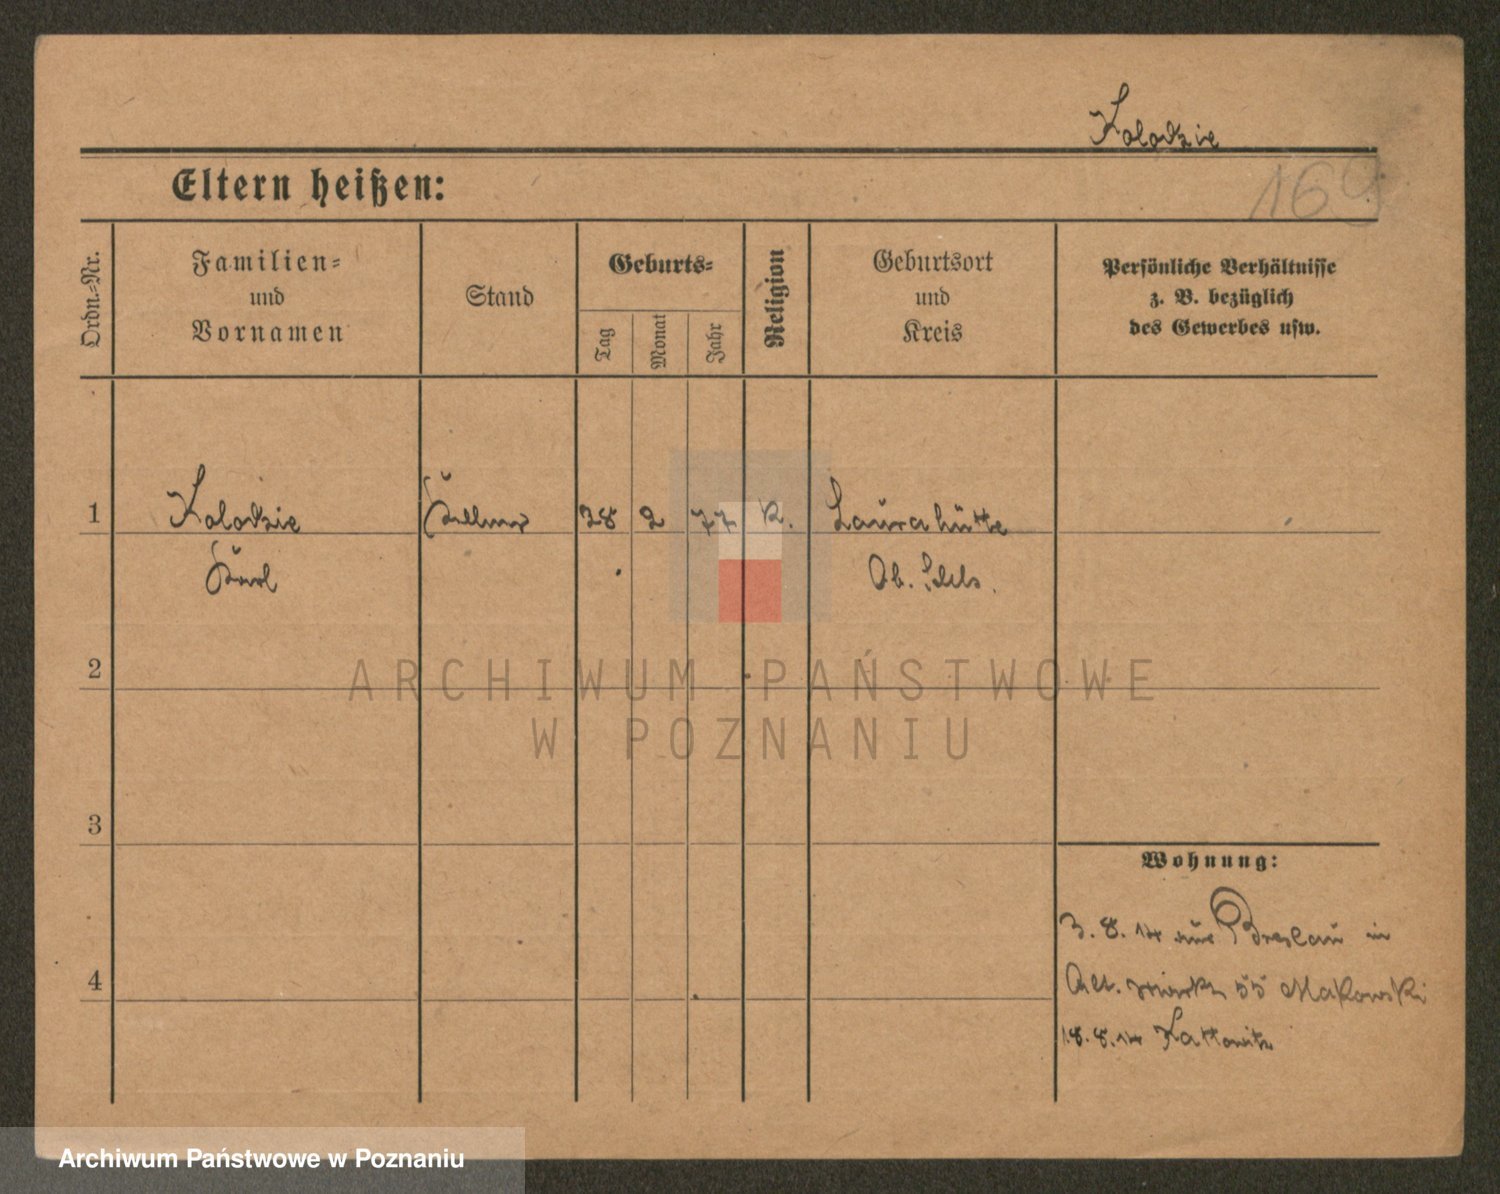 Kolodzie
169
Eltern heißen:
Ordn.-Nr.
Familien-
und
Vornamen
Stand
Geburts-
Tag
Monat
Jahr
Religion
Geburtsort
und
Kreis
Persönliche Verhältnisse
z. B. bezüglich
des Gewerbes usw.
1 Kolodzie Kellner 28 2 77 K. Laurahütte
Karl Ob. Schls.
2
3
4
Wohnung:
3. 8. 14 aus Breslau in
Alt. markt 55 Makowski
18. 8. 14 Kattowitz
ARCHIWUM PAŃSTWOWE
W POZNANIU
Archiwum Państwowe w Poznaniu